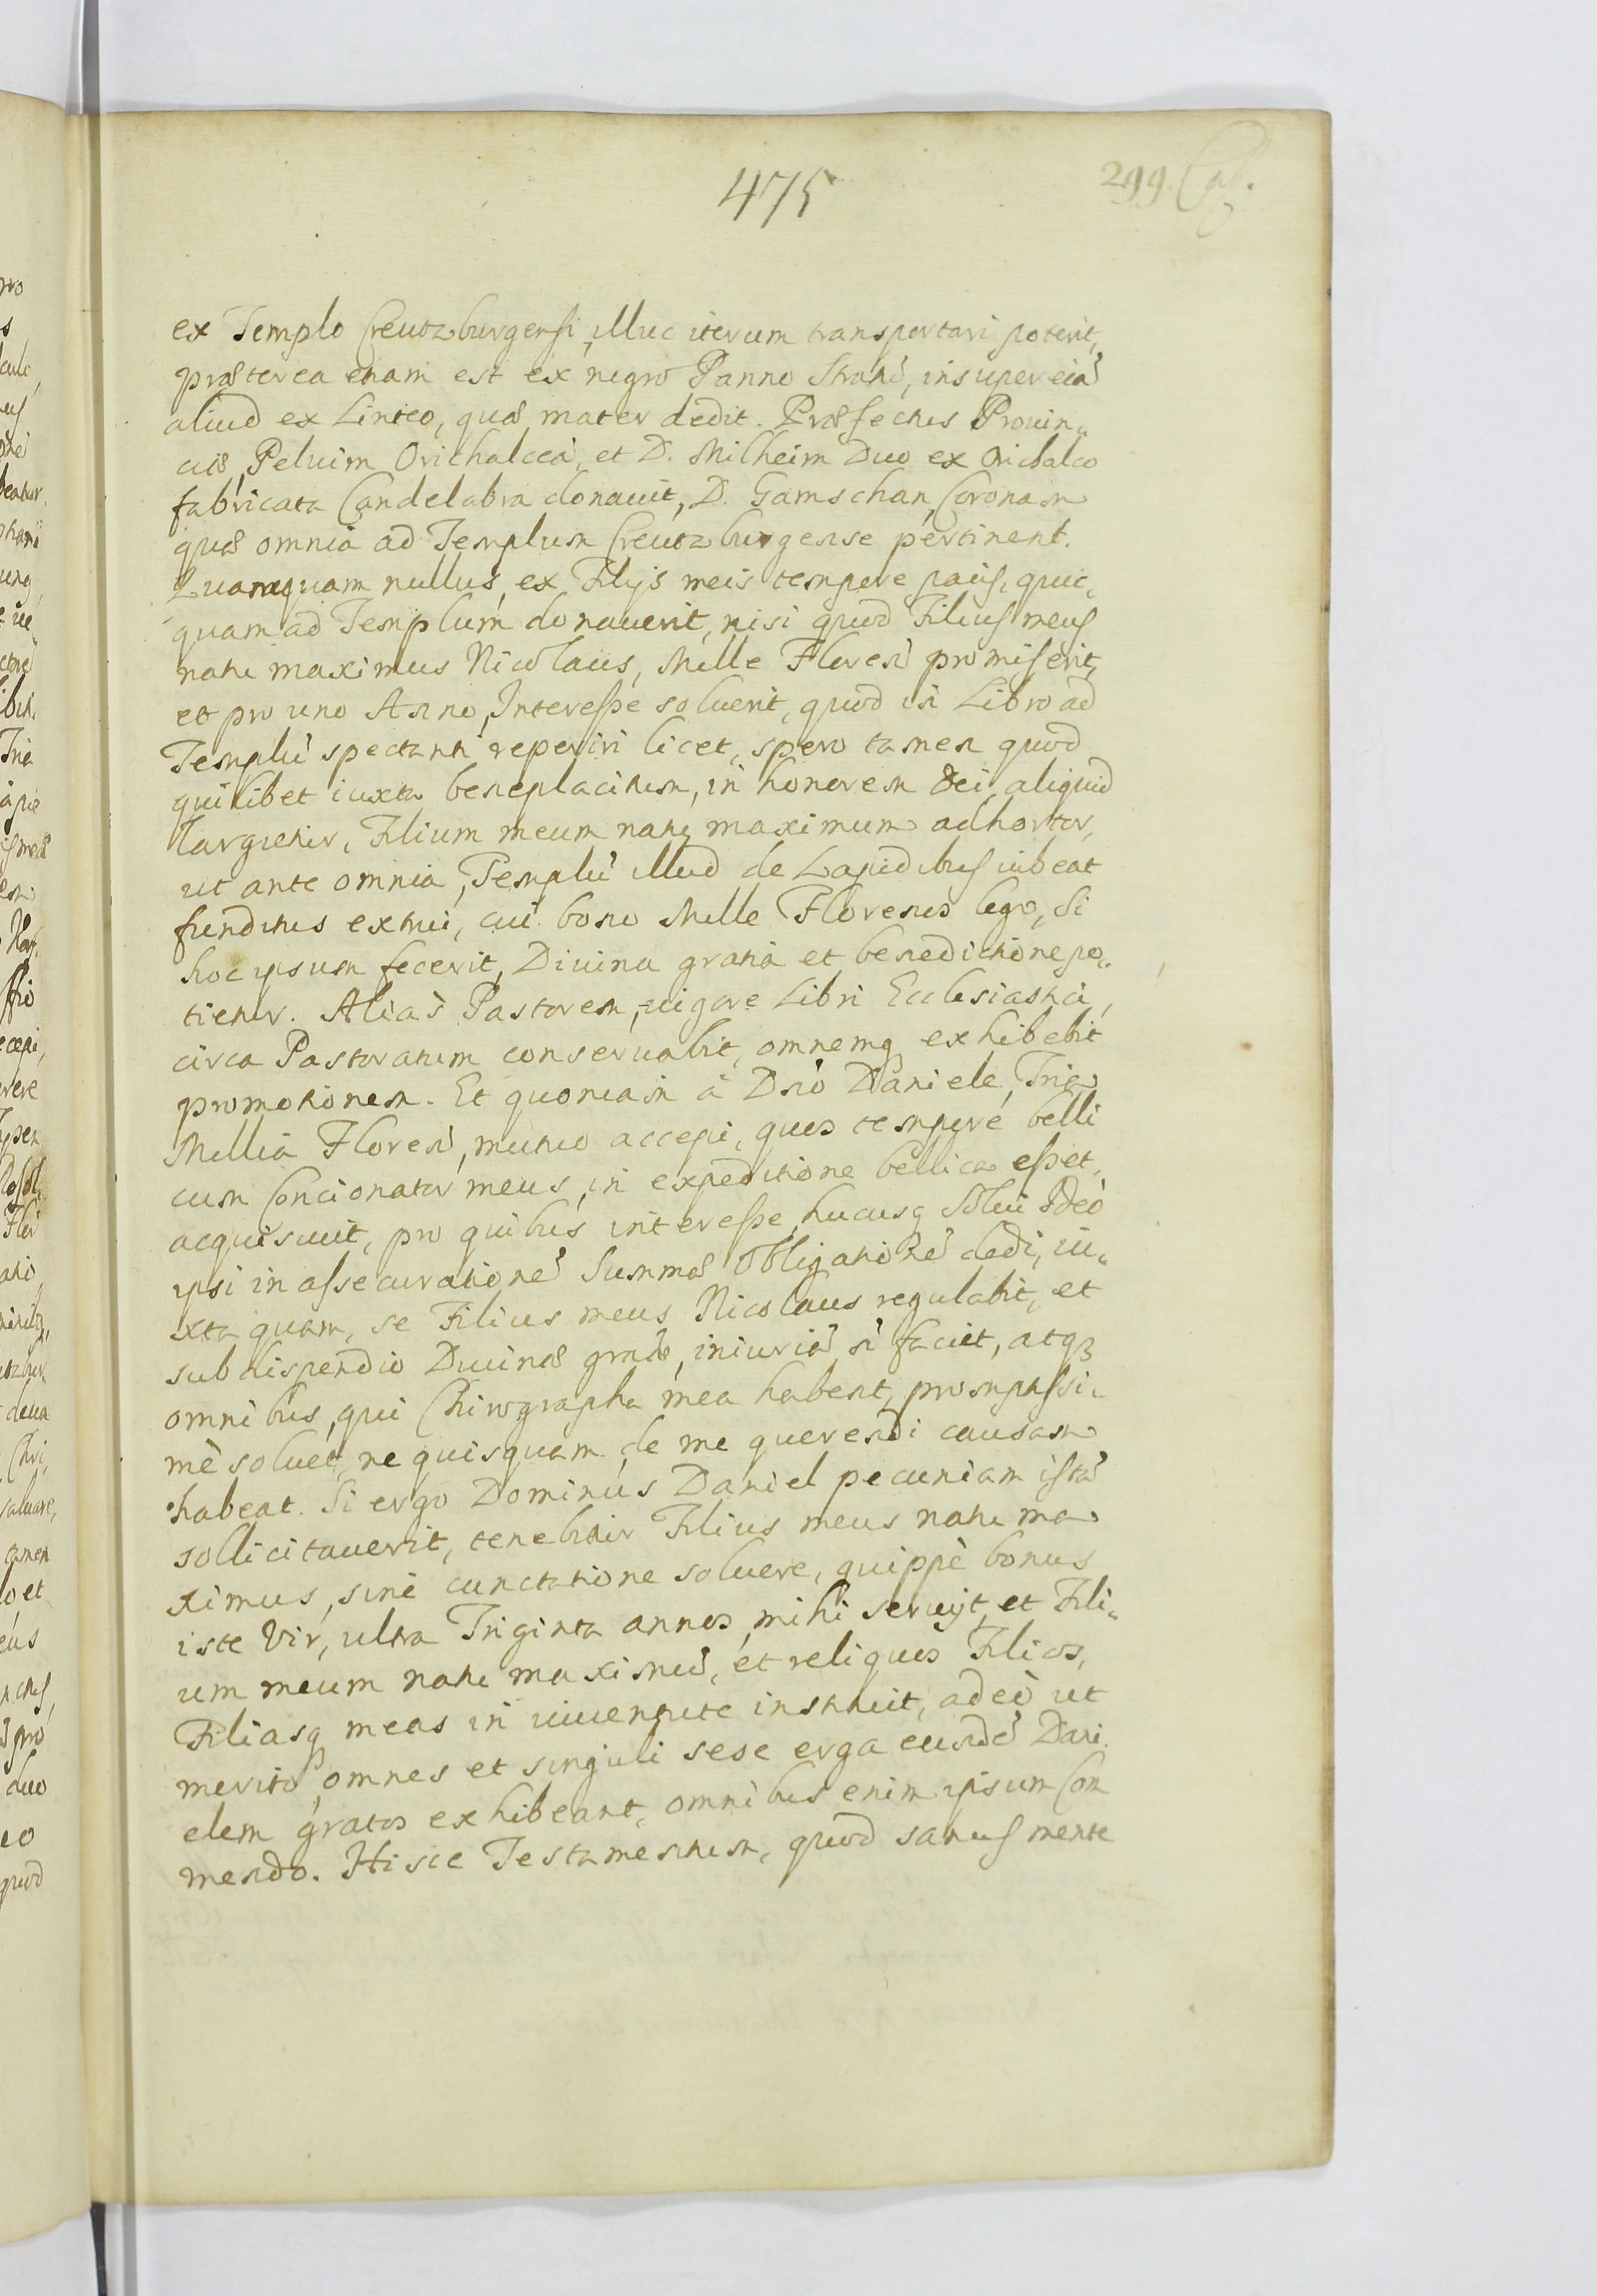 475
299.
ex Templo Creutzburgensi, illuc iterum transportari poterit,
præterea etiam est ex nigro Panno Stratũ, insuper etiã
aliud ex Linteo, quæ mater dedit. Præfectus Prouin„
ciæ, Peluim Orichalceã, et D. Milheim Duo ex Orichalco
fabricata Candelabra donauit, D. Gamschan, Coronam
quæ omnia ad Templum Creutzburgense pertinent.
Quamquam nullus, ex Filijs meis tempore pacis, quic„
quam ad Templum donauerit, nisi quod Filius meus
natu maximus Nicolaus, Mille Floren̄ promiserit,
et pro uno Anno, Interesse soluerit, quod in Libro ad
Templũ spectanti reperiri licet, spero tamen quod
quilibet iuxta beneplacitum, in honorem Dei aliquid
largietur, Filium meum natu maximum adhortor,
ut ante omnia, Templũ illud de Lapidibus iubeat
funditus extrui, cui bono Mille Florenos lego, si
hoc ipsum fecerit, Diuina gratia et benedictione po„
tietur. Aliàs Pastorem, uigore Libri Ecclesiastici,
circa Pastoratum conseruabit, omnemq exhibebit
promotionem. Et quoniam à Dño Daniele, Tria
Millia Floren̄, mutuo accepi, quos tempore belli
cum Concionator meus, in expeditione bellica esset,
acquisiuit, pro quibus interesse hucusq solui ideò
ipsi in assecurationẽ Summæ Obligationẽ dedi, iu„
xta quam, se Filius meus Nicolaus regulabit, et
sub dispendio Diuinæ grãæ, iniuriã ñ faciet, atq3
omnibus, qui Chirographa mea habent, promptissi„
mè soluet, ne quisquam de me querendi causam
habeat. Si ergo Dominus Daniel pecuniam istã
sollicitauerit, tenebitur Filius meus natu ma
ximus, sine cunctatione soluere, quippè bonus
iste Vir, ultra Triginta annos mihi seruijt, et Fili„
um meum natu maximũ, et reliquos Filios,
Filiasq meas in iuuentute instruit, adeò ut
meritò omnes et singuli sese erga eundẽ Dani
elem gratos exhibeant, omnibus enim ipsum Com
mendo. Hisce Testamentum, quod sanus mente